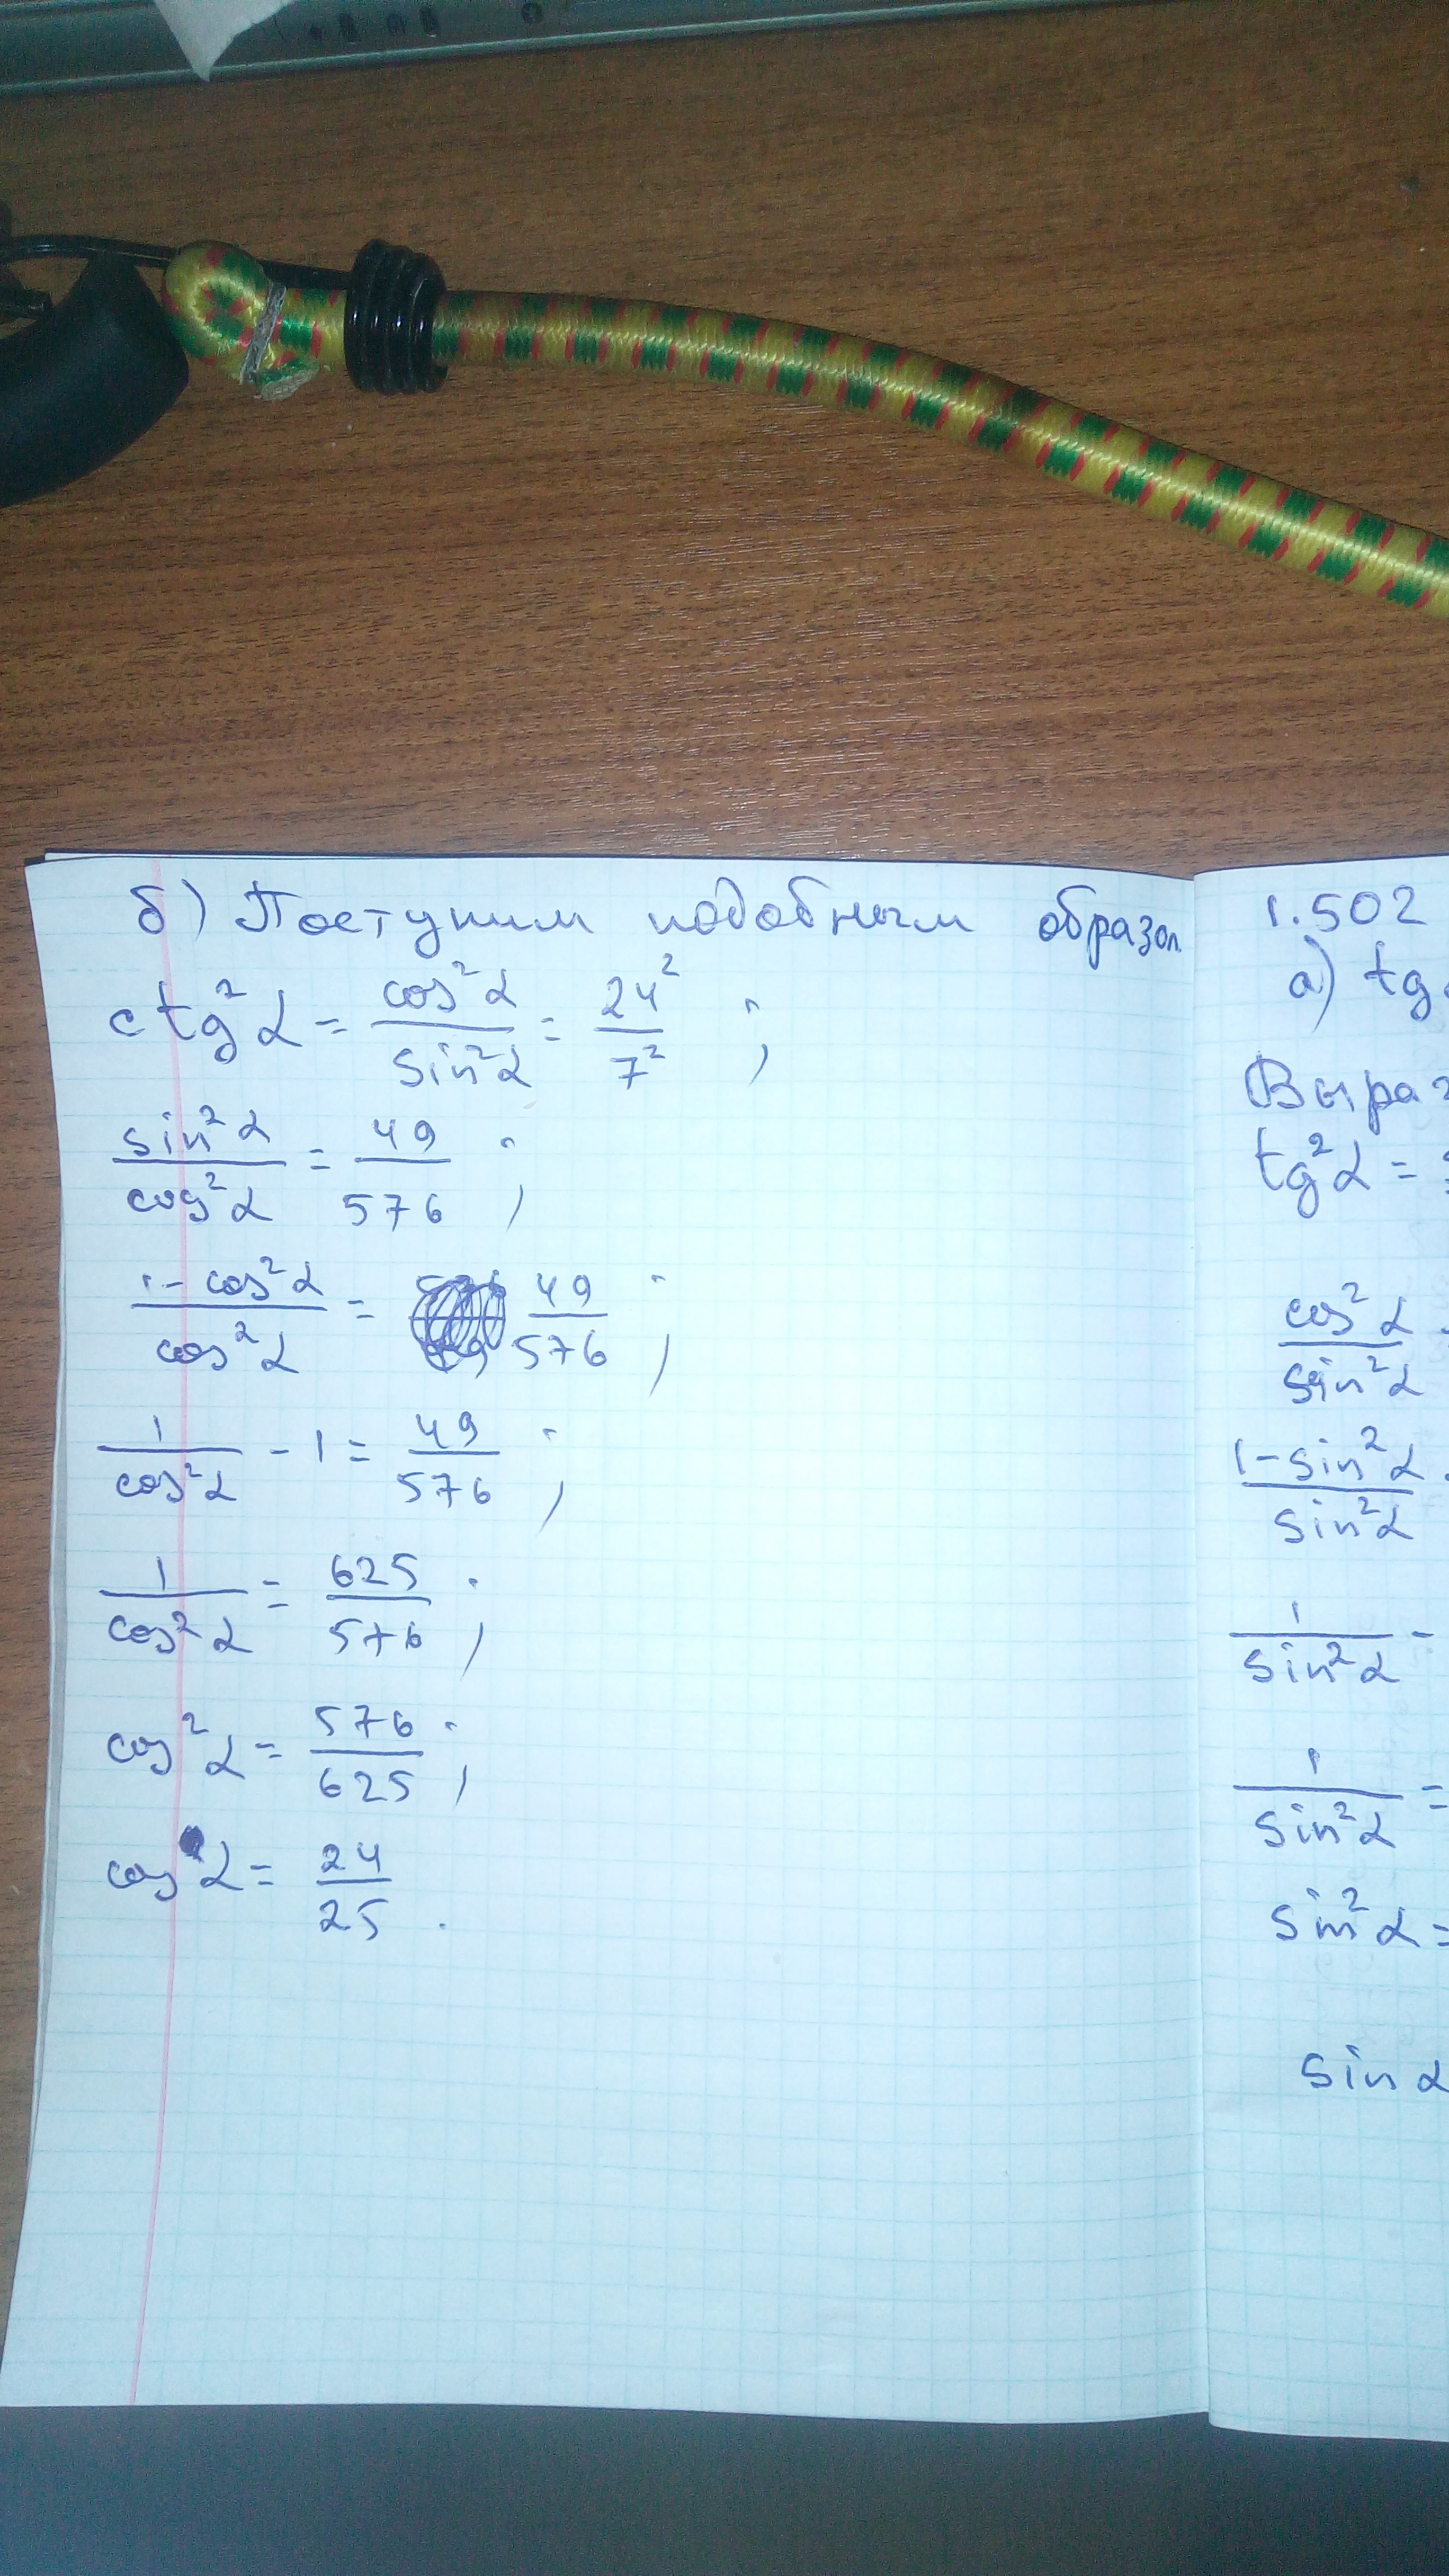 б) Поступим подобным образом
ctg²α = cos²α / sin²α = 24² / 7² ;
sin²α / cos²α = 49 / 576 ;
1 - cos²α / cos²α = 49 / 576 ;
1 / cos²α - 1 = 49 / 576 ;
1 / cos²α = 625 / 576 ;
cos²α = 576 / 625 ;
cos α = 24 / 25 .
1.502
а) tg
Выраз
tg²α =
cos²α / sin²α
1 - sin²α / sin²α
1 / sin²α -
1 / sin²α =
sin²α =
sin α